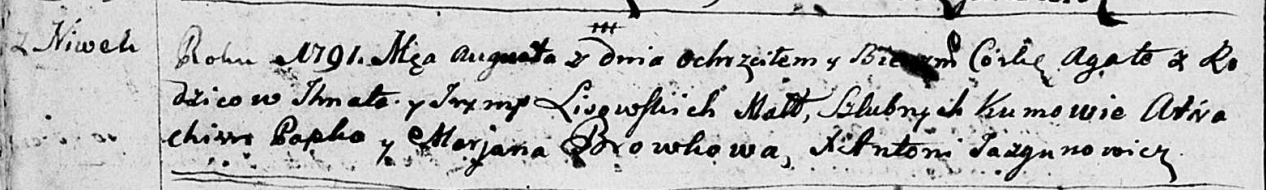 z Niwek
Roku 1791. Mca Augusta z dnia ochrzciłem y Bierzm Corkę Agatę z Ro
dzicow Ihnata y Lisowskich Małż, Slubnych Kumowie
Papko y Marjana Browkowa, X Antoni Jazgunowicz